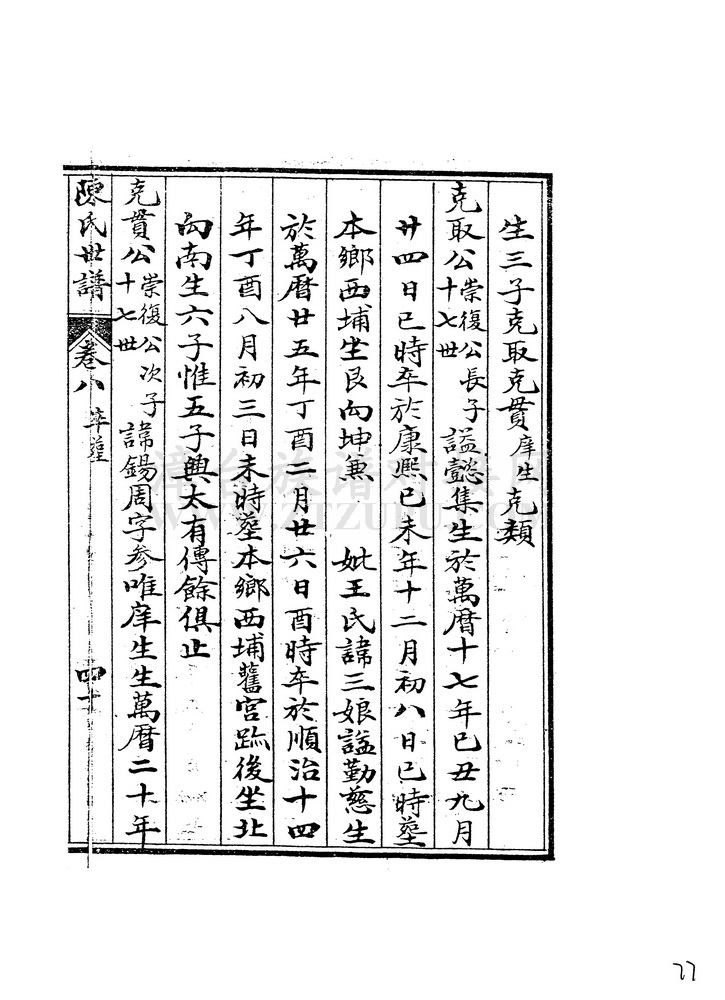 生三子克取克貫庠生克類
克取公崇復公長子十七世謚懿集生於萬曆十七年已丑九月
廿四日已時卒於康熙已未年十二月初八日已時塟
本鄉西埔坐艮向坤兼 妣王氏諱三娘謚勤慈生
於萬曆廿五年丁酉二月廿六日酉時卒於順治十四
年丁酉八月初三日未時塟本鄉西埔舊宮跡後坐北
向南生六子惟五子興太有傳餘俱止
克貫公崇復公次子十七世諱錫周字参唯庠生生萬曆二十年
陳氏世譜 卷八 卒塟 四十
漳台族谱对接网
WWW.ZTZUPU.COM
77